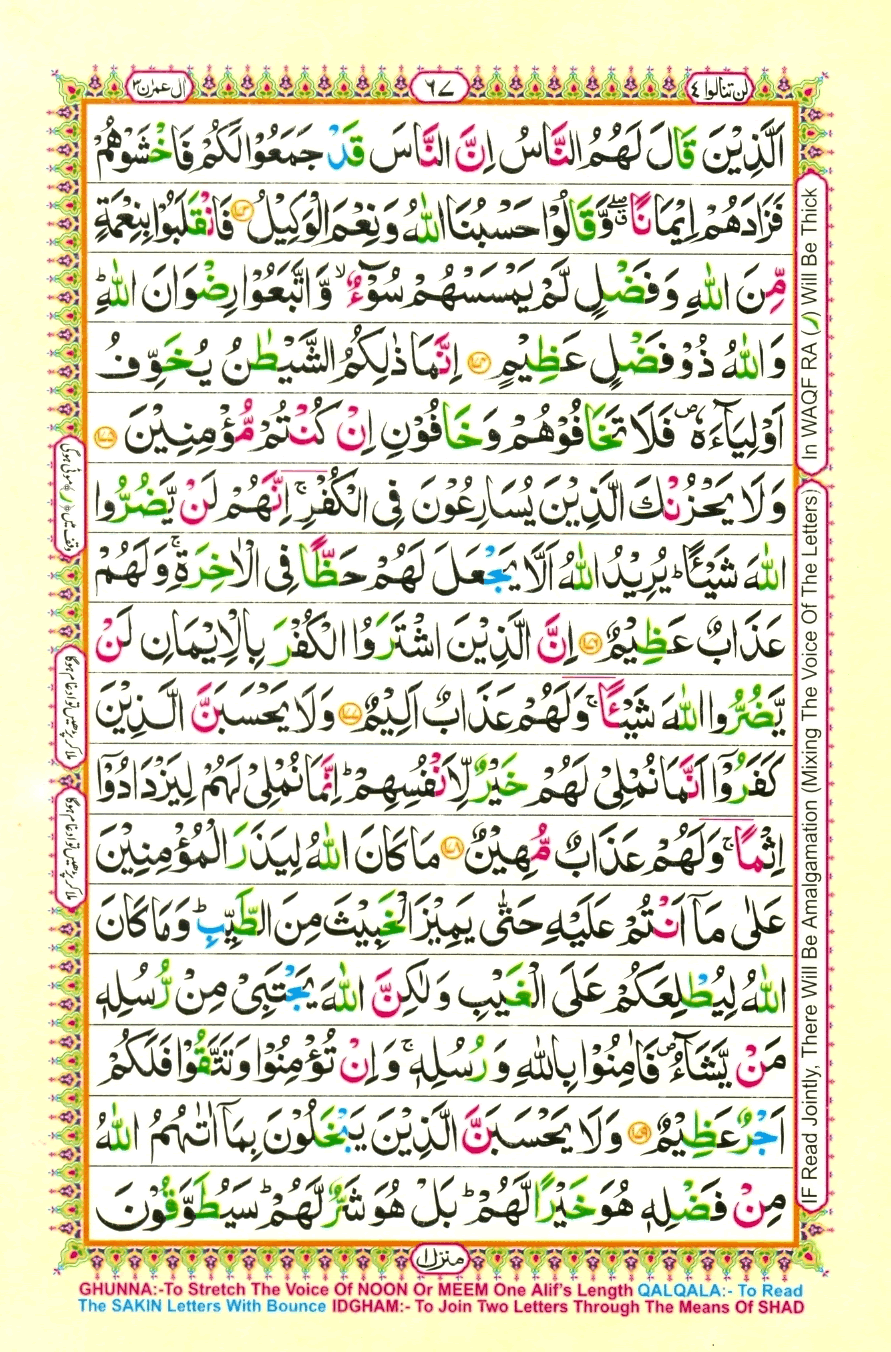 لن تنالوا ٤
٦٧
اٰل عمرٰن ٣
اَلَّذِيْنَ قَالَ لَهُمُ النَّاسُ اِنَّ النَّاسَ قَدْ جَمَعُوْا لَكُمْ فَاخْشَوْهُمْ
فَزَادَهُمْ اِيْمَانًا ۖۗ وَّقَالُوْا حَسْبُنَا اللّٰهُ وَنِعْمَ الْوَكِيْلُ ﴿۱۷۳﴾ فَانْقَلَبُوْا بِنِعْمَةٍ
مِّنَ اللّٰهِ وَفَضْلٍ لَّمْ يَمْسَسْهُمْ سُوْٓءٌ ۙ وَّاتَّبَعُوْا رِضْوَانَ اللّٰهِ ؕ
وَاللّٰهُ ذُوْ فَضْلٍ عَظِيْمٍ ﴿۱۷۴﴾ اِنَّمَا ذٰلِكُمُ الشَّيْطٰنُ يُخَوِّفُ
اَوْلِيَآءَهٗ ۪ فَلَا تَخَافُوْهُمْ وَخَافُوْنِ اِنْ كُنْتُمْ مُّؤْمِنِيْنَ ﴿۱۷۵﴾
وَلَا يَحْزُنْكَ الَّذِيْنَ يُسَارِعُوْنَ فِى الْكُفْرِ ۚ اِنَّهُمْ لَنْ يَّضُرُّوا
اللّٰهَ شَيْـًٔا ؕ يُرِيْدُ اللّٰهُ اَلَّا يَجْعَلَ لَهُمْ حَظًّا فِى الْاٰخِرَةِ ۚ وَلَهُمْ
عَذَابٌ عَظِيْمٌ ﴿۱۷۶﴾ اِنَّ الَّذِيْنَ اشْتَرَوُا الْكُفْرَ بِالْاِيْمَانِ لَنْ
يَّضُرُّوا اللّٰهَ شَيْـًٔا ۚ وَلَهُمْ عَذَابٌ اَلِيْمٌ ﴿۱۷۷﴾ وَلَا يَحْسَبَنَّ الَّذِيْنَ
كَفَرُوْٓا اَنَّمَا نُمْلِىْ لَهُمْ خَيْرٌ لِّاَنْفُسِهِمْ ؕ اِنَّمَا نُمْلِىْ لَهُمْ لِيَزْدَادُوْٓا
اِثْمًا ۚ وَلَهُمْ عَذَابٌ مُّهِيْنٌ ﴿۱۷۸﴾ مَا كَانَ اللّٰهُ لِيَذَرَ الْمُؤْمِنِيْنَ
عَلٰى مَاۤ اَنْتُمْ عَلَيْهِ حَتّٰى يَمِيْزَ الْخَبِيْثَ مِنَ الطَّيِّبِ ؕ وَمَا كَانَ
اللّٰهُ لِيُطْلِعَكُمْ عَلَى الْغَيْبِ وَلٰكِنَّ اللّٰهَ يَجْتَبِىْ مِنْ رُّسُلِهٖ
مَنْ يَّشَآءُ ۪ فَاٰمِنُوْا بِاللّٰهِ وَرُسُلِهٖ ۚ وَاِنْ تُؤْمِنُوْا وَتَتَّقُوْا فَلَكُمْ
اَجْرٌ عَظِيْمٌ ﴿۱۷۹﴾ وَلَا يَحْسَبَنَّ الَّذِيْنَ يَبْخَلُوْنَ بِمَاۤ اٰتٰٮهُمُ اللّٰهُ
مِنْ فَضْلِهٖ هُوَ خَيْرًا لَّهُمْ ؕ بَلْ هُوَ شَرٌّ لَّهُمْ ؕ سَيُطَوَّقُوْنَ
منزل ۱
In WAQF RA (ر) Will Be Thick
IF Read Jointly, There Will Be Amalgamation (Mixing The Voice Of The Letters)
وقف میں (ر) موٹی ہوگی
ملا کر پڑھیں تو ادغام ہوگا
ملا کر پڑھیں تو ادغام ہوگا
GHUNNA:-To Stretch The Voice Of NOON Or MEEM One Alif's Length QALQALA:- To Read
The SAKIN Letters With Bounce IDGHAM:- To Join Two Letters Through The Means Of SHAD